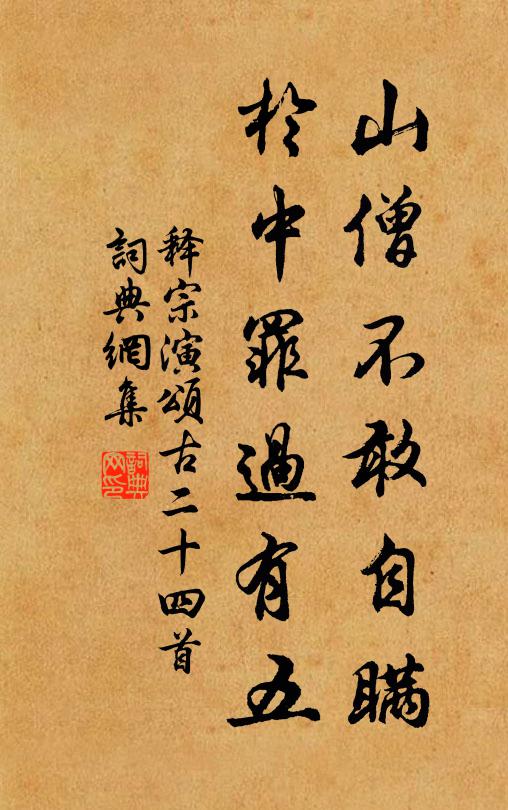 山僧不敢自瞞
於中罪過有五
释宗演頌古二十四首
詞典網集
詞典
网印